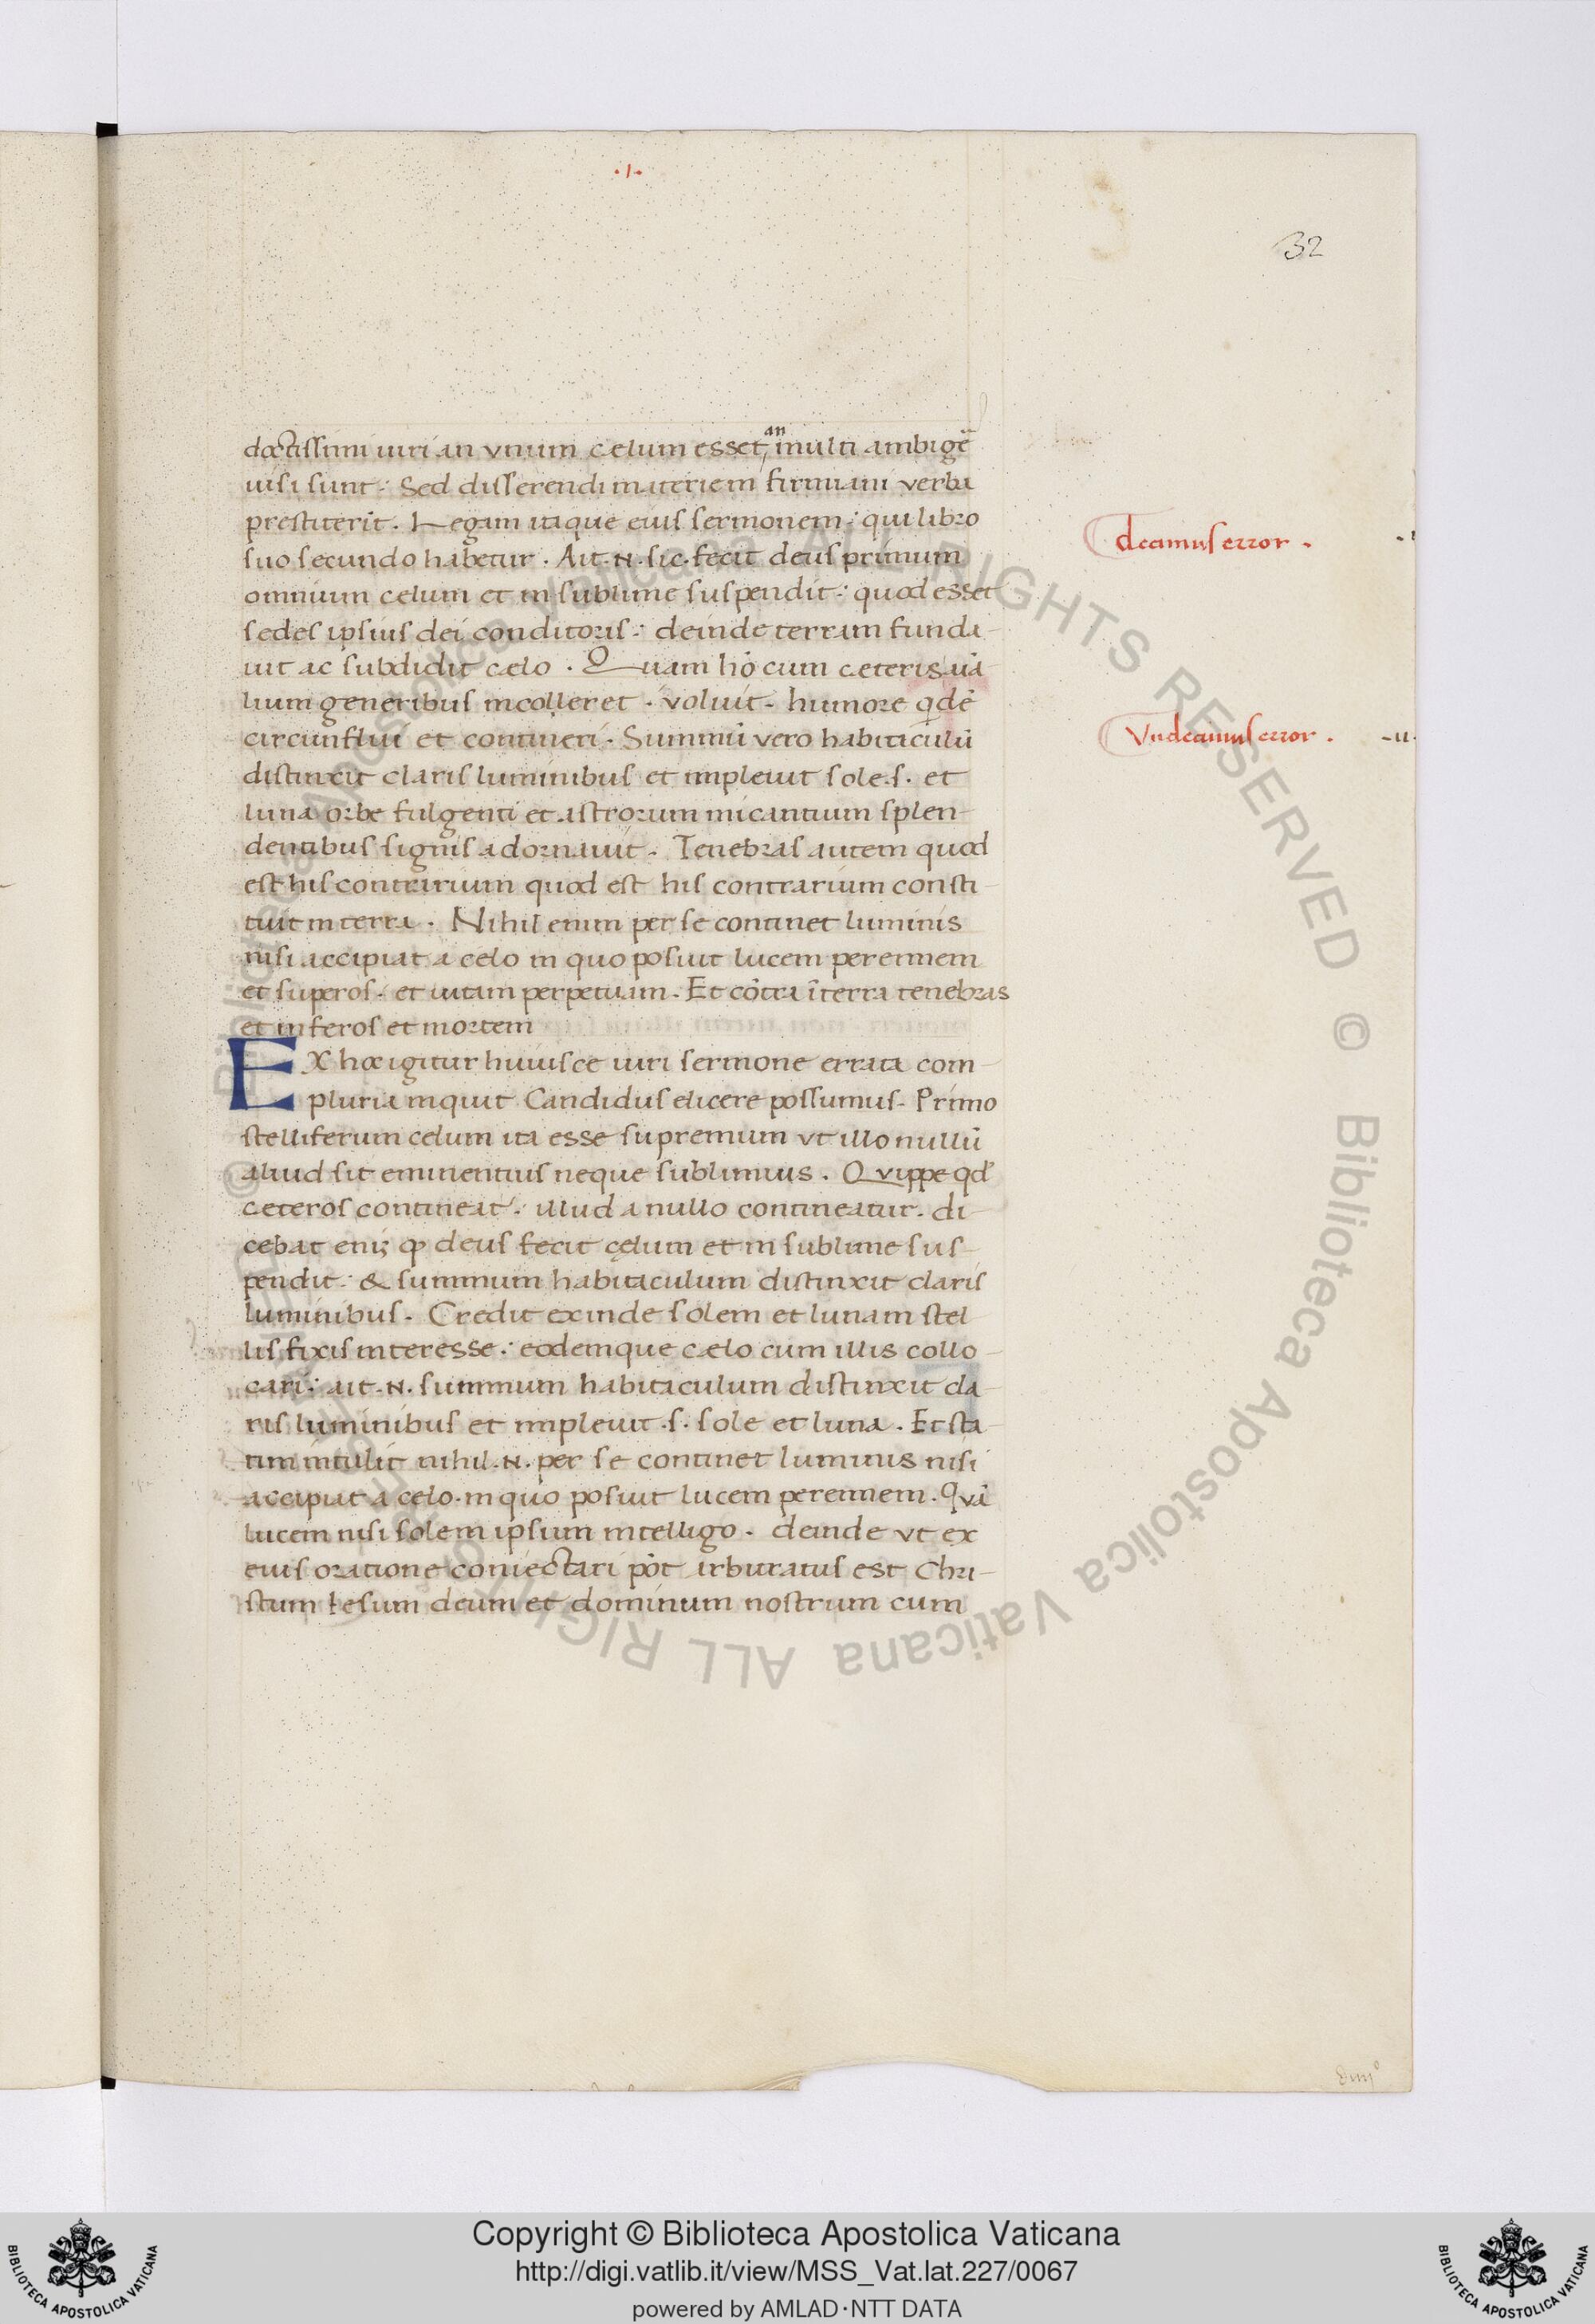 .1.
32
doctissimi uiri an vnum celum esset, an multi ambigē
uisi sunt: Sed disserendi materiem firmiani verba
prestiterīt. Legam itaque eius sermonem: qui libro
suo secundo habetur. Ait .N. sic. fecit deus primum
decimus error.
omnium celum et in sublime suspendit: quod esset
sedes ipsius dei conditoris: deinde terram funda-
uit ac subdidit cælo. Quam hō cum ceteris aīa-
lium generibus incolleret. voluit. humore qdē
circunflui et contineri. Summū vero habitaculū
Vndecimus error. -u.
distinxit claris luminibus et impleuit sole.s. et
luna orbe fulgenti et astrorum micantium splen-
dentibus signis adornauit. Tenebras autem quod
est his contrarium quod est his contrarium consti-
tuit in terra. Nihil enim per se continet luminis
nisi accipiat a celo in quo posuit lucem perennem
et superos. et uitam perpetuam. Et cōtra ī terra tenebras
et inferos et mortem
EX hoc igitur huiusce uiri sermone errata com-
pluria inquit Candidus elicere possumus. Primo
stelliferum celum ita esse supremum vt illo nullū
aliud sit eminentius neque sublimius. Quippe qd'
ceteros contineat: illud a nullo contineatur. di-
cebat eni; ꝙ deus fecit cęlum et in sublime sus-
pendit: & summum habitaculum distinxit claris
luminibus. Credit exinde solem et lunam stel
lis fixis interesse: eodemque cælo cum illis collo-
cari: ait .N. summum habitaculum distinxit cla-
ris luminibus et impleuit .s. sole et luna. Et sta
tim intulit nihil .N. per se continet luminis nisi
accipiat a celo. in quo posuit lucem perennem. Quā
lucem nisi solem ipsum intelligo. deinde vt ex
eius oratione coniectari pōt arbitratus est Chri-
stum Iesum deum et dominum nostrum cum
Copyright © Biblioteca Apostolica Vaticana
http://digi.vatlib.it/view/MSS_Vat.lat.227/0067
powered by AMLAD·NTT DATA
BIBLIOTECA APOSTOLICA VATICANA
BIBLIOTECA APOSTOLICA VATICANA